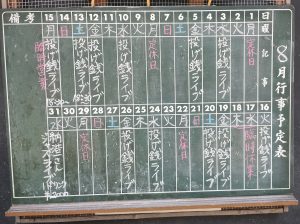 8月行事予定表
日 曜 記事
1 月 定休日
2 火
3 水 投げ銭ライブ
4 木
5 金 投げ銭ライブ
6 土 投げ銭ライブ
7 日
8 月 定休日
9 火
10 水 投げ銭ライブ
11 木
12 金 投げ銭ライブ
13 土 投げ銭ライブ 18:30~
14 日
15 月 臨時休業
備考
16 火 投げ銭ライブ
17 水 臨時休業
18 木
19 金 投げ銭ライブ
20 土 投げ銭ライブ
21 日
22 月 定休日
23 火
24 水 投げ銭ライブ
25 木
26 金 投げ銭ライブ
27 土
28 日
29 月 定休日
30 火
31 水 さん ライブ